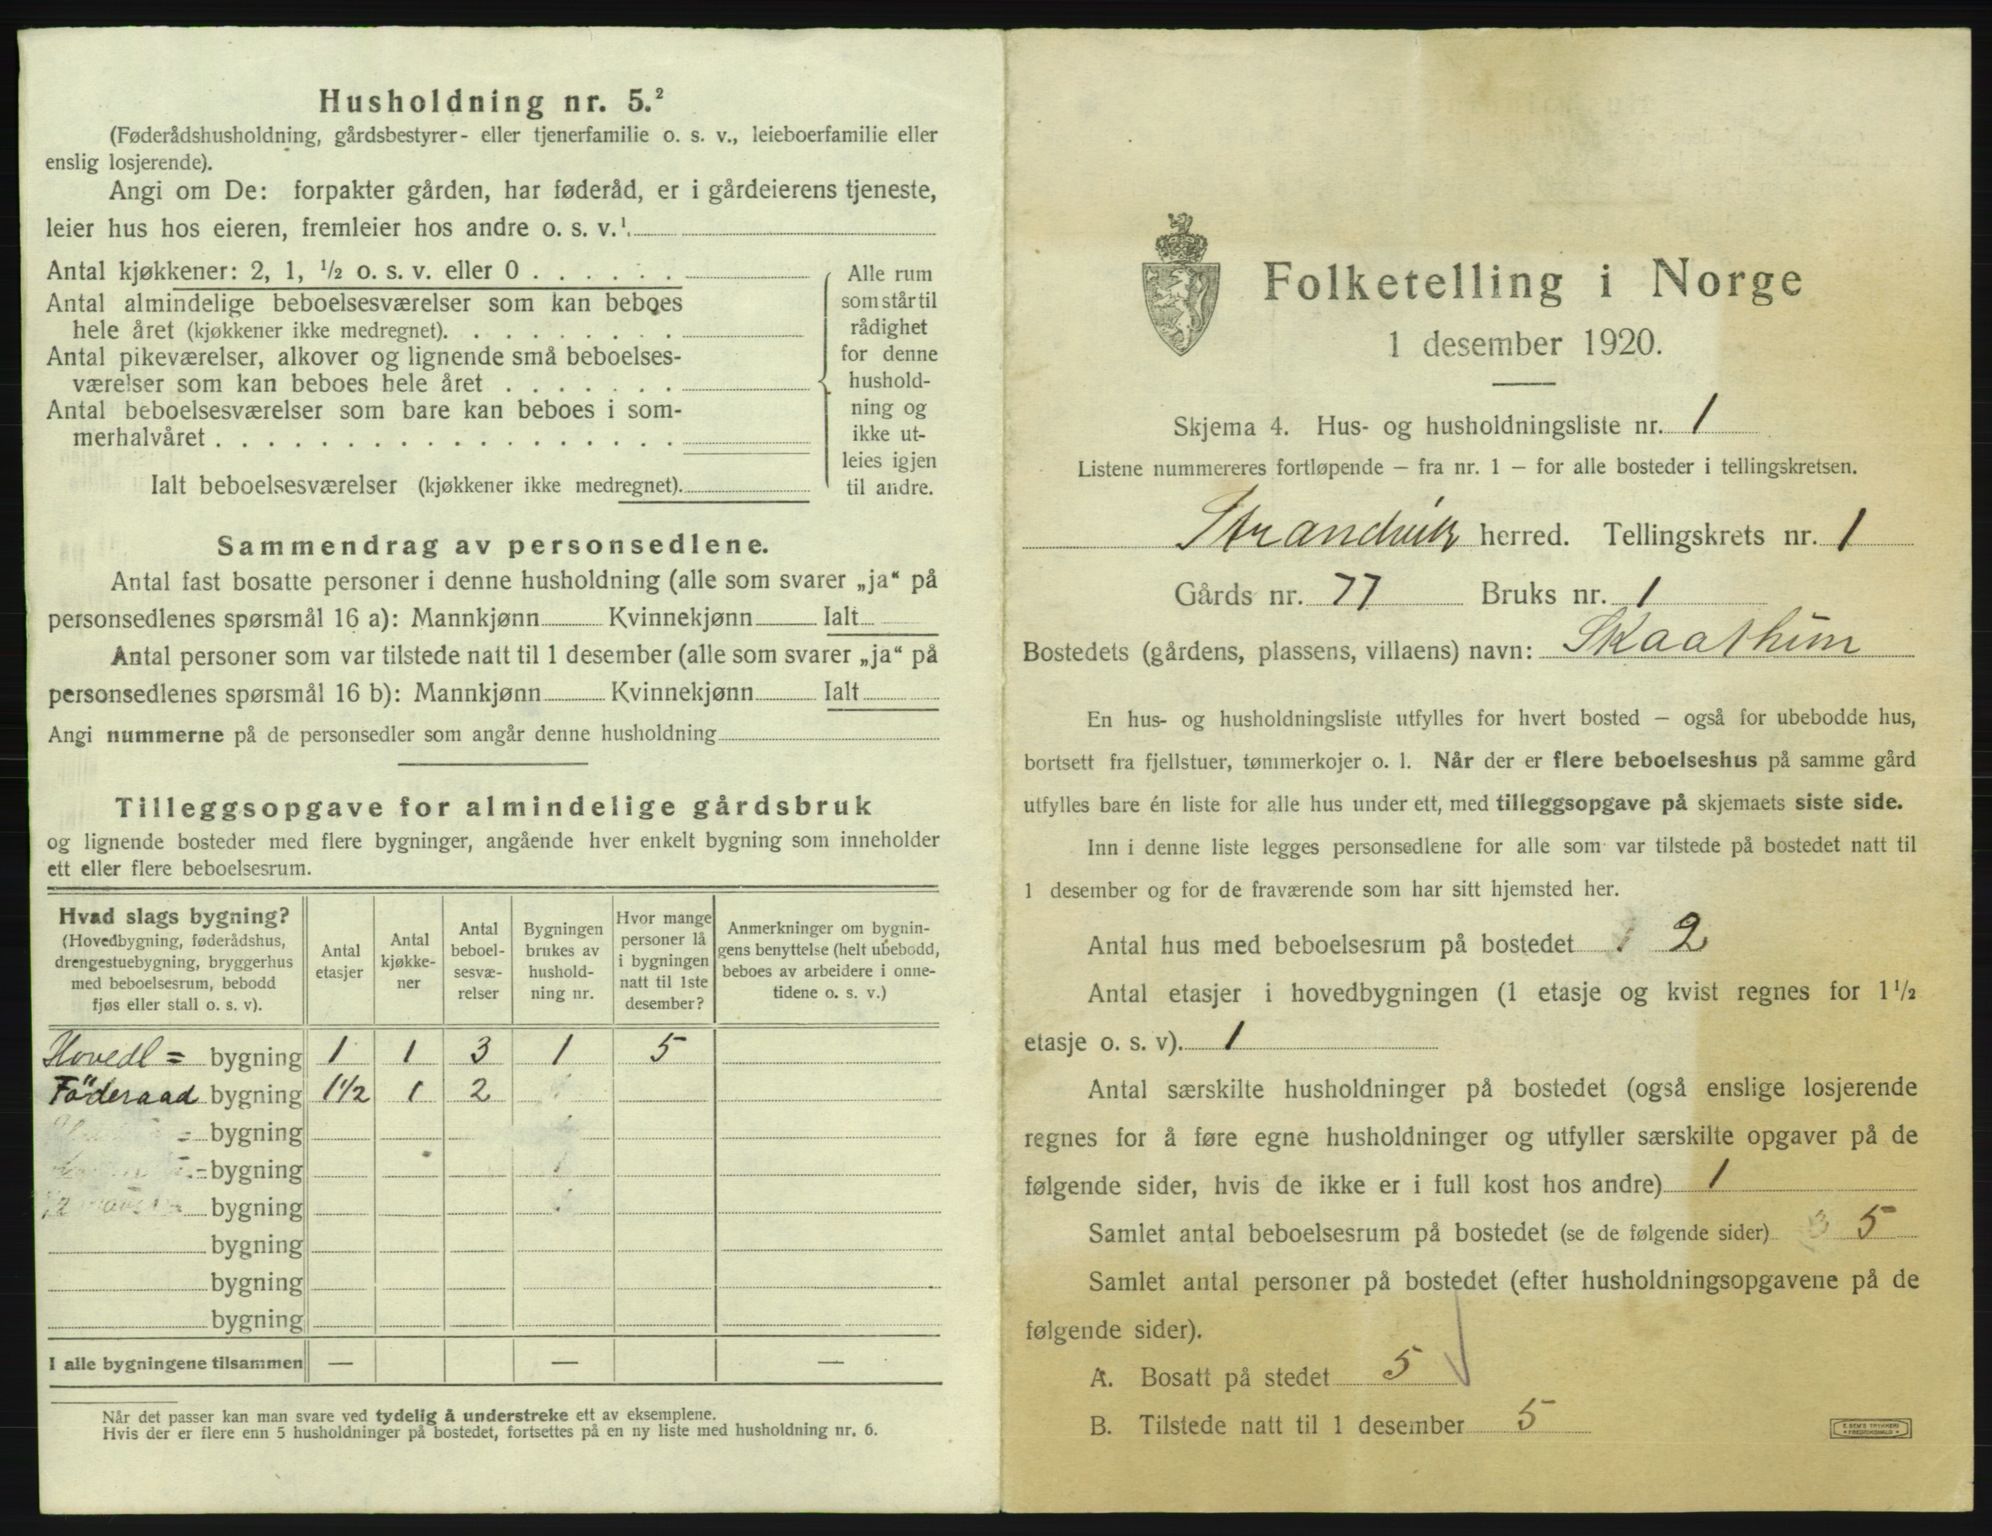 Husholdning nr. 5.²
(Føderådshusholdning, gårdsbestyrer- eller tjenerfamilie o. s. v., leieboerfamilie eller
enslig losjerende).
Angi om De: forpakter gården, har føderåd, er i gårdeierens tjeneste,
leier hus hos eieren, fremleier hos andre o. s. v.¹.
Antal kjøkkener: 2, 1, ½ o. s. v. eller 0 . . . . . .
Antal almindelige beboelsesværelser som kan beboes
hele året (kjøkkener ikke medregnet). . . . . . . . .
Antal pikeværelser, alkover og lignende små beboelses-
værelser som kan beboes hele året . . . . . . .
Antal beboelsesværelser som bare kan beboes i som-
merhalvåret . . . . . . . . . . . . . . . . . .
Ialt beboelsesværelser (kjøkkener ikke medregnet).
Alle rum
som står til
rådighet
for denne
hushold-
ning og
ikke ut-
leies igjen
til andre.
Sammendrag av personsedlene.
Antal fast bosatte personer i denne husholdning (alle som svarer „ja“ på
personsedlenes spørsmål 16 a): Mannkjønn Kvinnekjønn Ialt
Antal personer som var tilstede natt til 1 desember (alle som svarer „ja“ på
personsedlenes spørsmål 16 b): Mannkjønn Kvinnekjønn Ialt
Angi nummerne på de personsedler som angår denne husholdning
Tilleggsopgave for almindelige gårdsbruk
og lignende bosteder med flere bygninger, angående hver enkelt bygning som inneholder
ett eller flere beboelsesrum.
Hvad slags bygning?
(Hovedbygning, føderådshus,
drengestuebygning, bryggerhus
med beboelsesrum, bebodd
fjøs eller stall o. s. v).
Antal
etasjer
Antal
kjøkke-
ner
Antal
beboel-
sesvæ-
relser
Bygningen
brukes av
hushold-
ning nr.
Hvor mange
personer lå
i bygningen
natt til 1ste
desember?
Anmerkninger om bygnin-
gens benyttelse (helt ubebodd,
beboes av arbeidere i onne-
tidene o. s. v.)
Hovedl = bygning 1 1 3 1 5
Föderaad bygning 1½ 1 2
= bygning
= bygning
bygning
bygning
bygning
bygning
I alle bygningene tilsammen — — —
Når det passer kan man svare ved tydelig å understreke ett av eksemplene.
Hvis der er flere enn 5 husholdninger på bostedet, fortsettes på en ny liste med husholdning nr. 6.
Folketelling i Norge
1 desember 1920.
Skjema 4. Hus- og husholdningsliste nr. 1
Listene nummereres fortløpende — fra nr. 1 — for alle bosteder i tellingskretsen.
Strandvik herred. Tellingskrets nr. 1
Gårds nr. 77 Bruks nr. 1
Bostedets (gårdens, plassens, villaens) navn: Skaathun
En hus- og husholdningsliste utfylles for hvert bosted — også for ubebodde hus,
bortsett fra fjellstuer, tømmerkojer o. l. Når der er flere beboelseshus på samme gård
utfylles bare én liste for alle hus under ett, med tilleggsopgave på skjemaets siste side.
Inn i denne liste legges personsedlene for alle som var tilstede på bostedet natt til
1 desember og for de fraværende som har sitt hjemsted her.
Antal hus med beboelsesrum på bostedet 2
Antal etasjer i hovedbygningen (1 etasje og kvist regnes for 1½
etasje o. s. v). 1
Antal særskilte husholdninger på bostedet (også enslige losjerende
regnes for å føre egne husholdninger og utfyller særskilte opgaver på de
følgende sider, hvis de ikke er i full kost hos andre) 1
Samlet antal beboelsesrum på bostedet (se de følgende sider) 3 5
Samlet antal personer på bostedet (efter husholdningsopgavene på de
følgende sider).
A. Bosatt på stedet 5
B. Tilstede natt til 1 desember 5
E. SEM'S TRYKKERI
FREDRIKSHALD